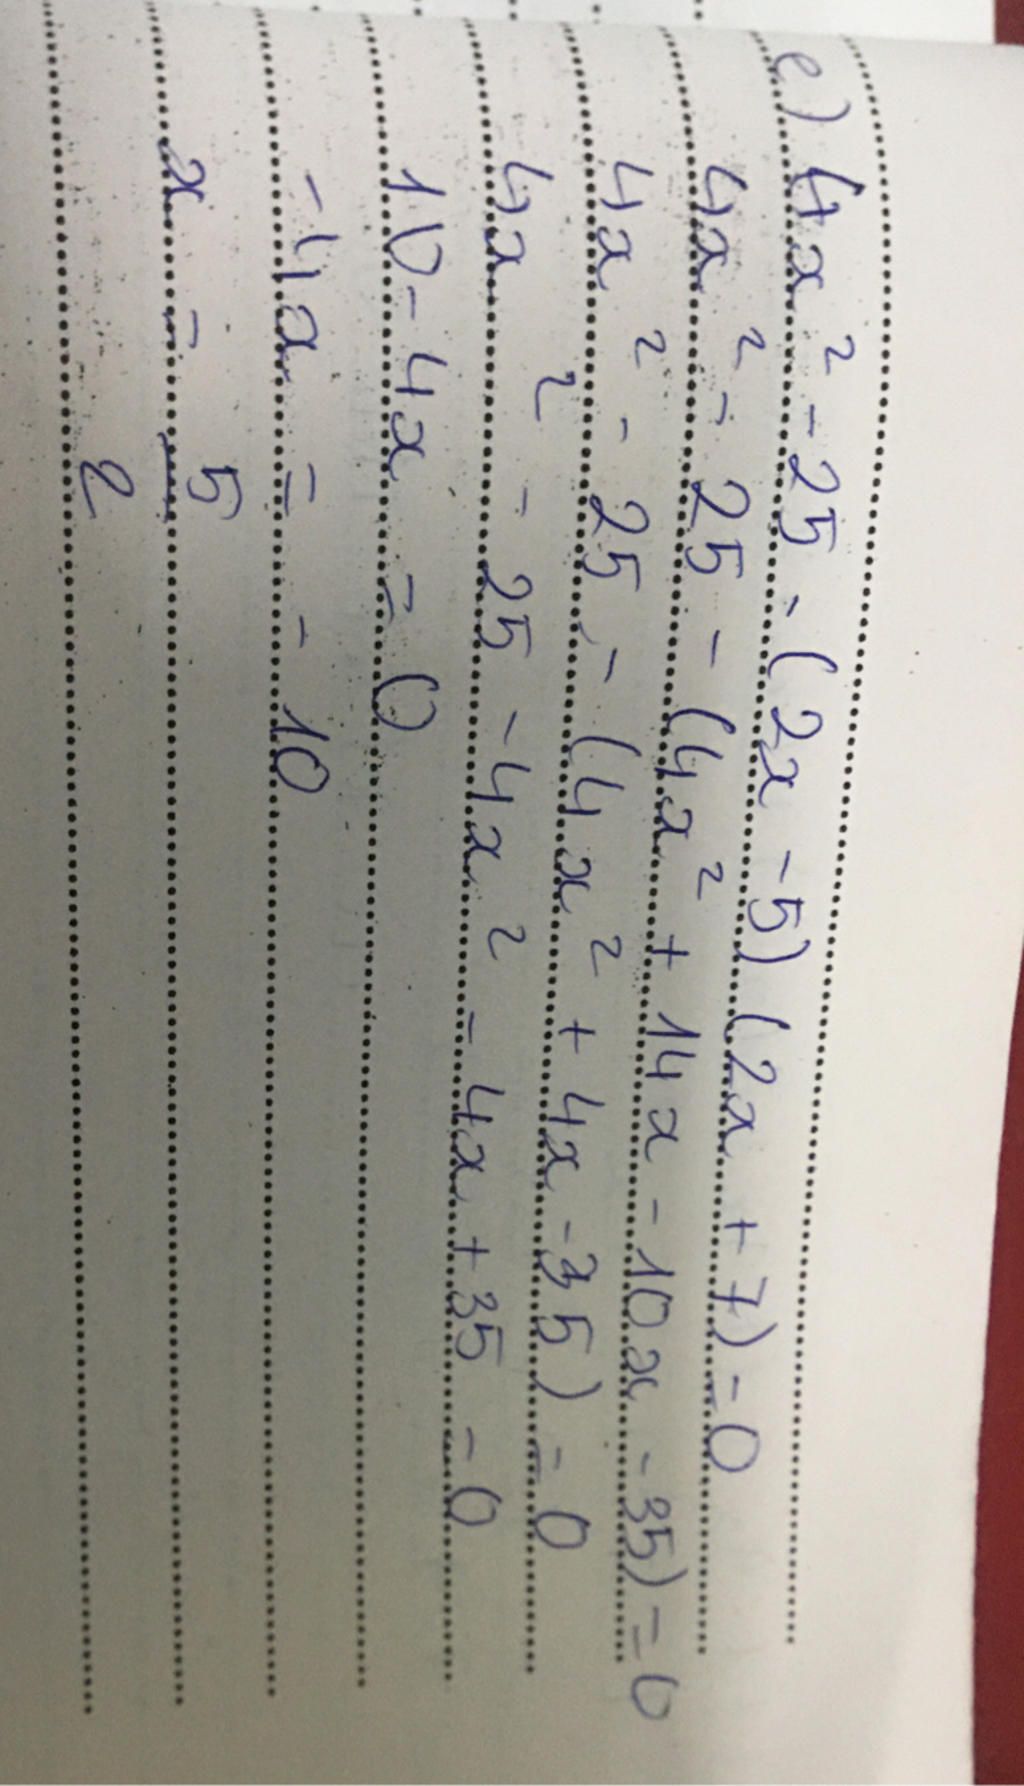 e) 4x² - 25 - (2x - 5)(2x + 7) = 0
4x² - 25 - (4x² + 14x - 10x - 35) = 0
4x² - 25 - (4x² + 4x - 35) = 0
4x² - 25 - 4x² - 4x + 35 = 0
10 - 4x = 0
-4x = -10
x = 5/2